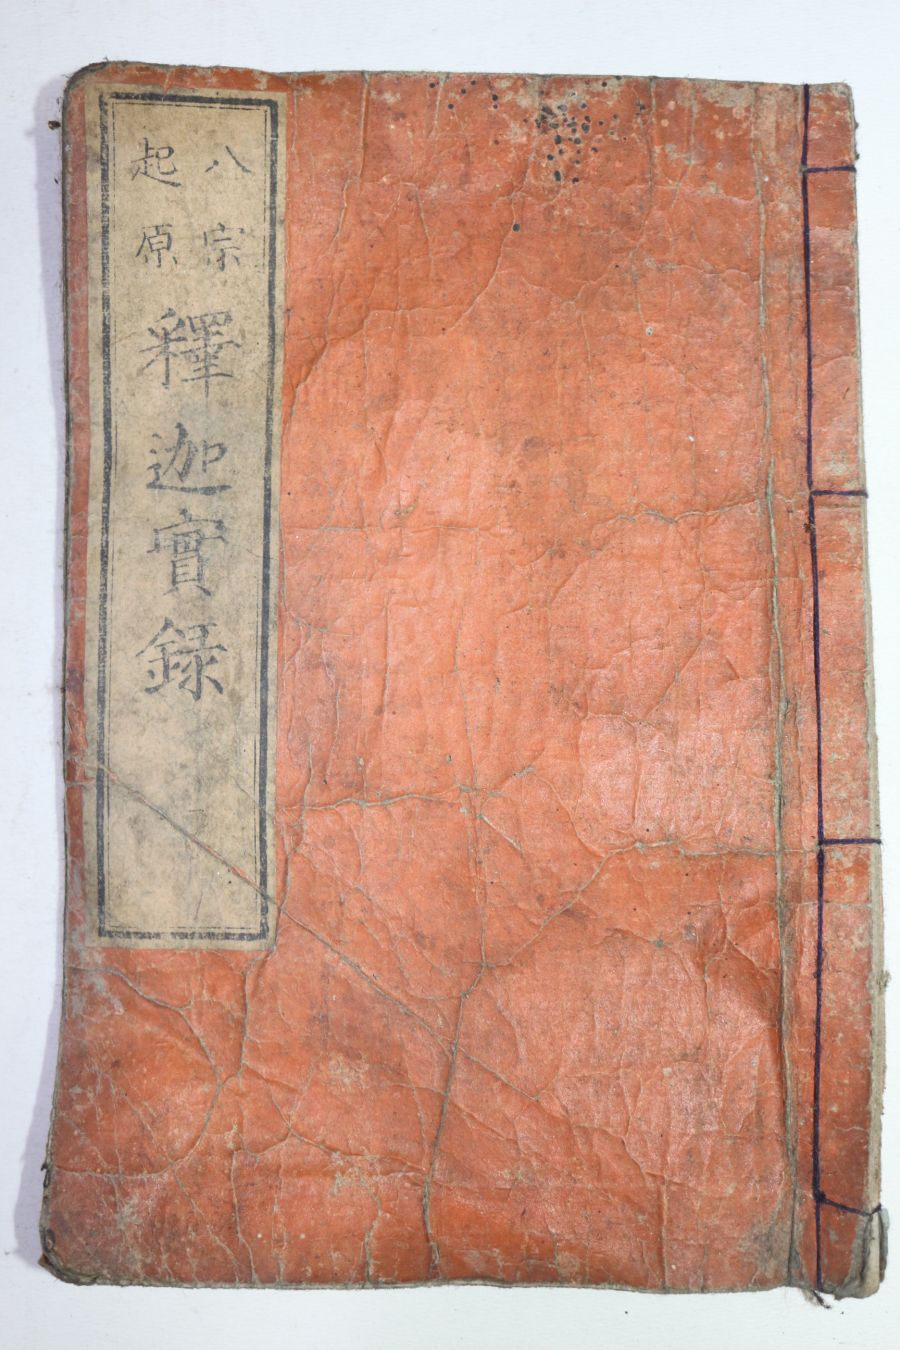 八宗
起原
釋迦實録